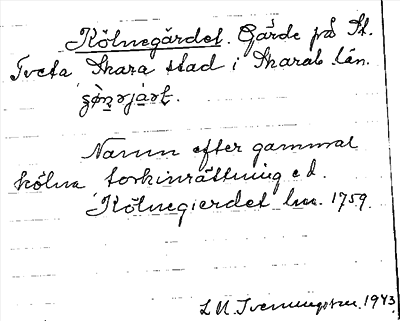 Kölnegärdet. Gärde på St.
Tveta Skara stad i Skarab. län.
Namn efter gammal
kölna, torkinrättning e.d.
Kölnegierdet lm. 1759.
1943.